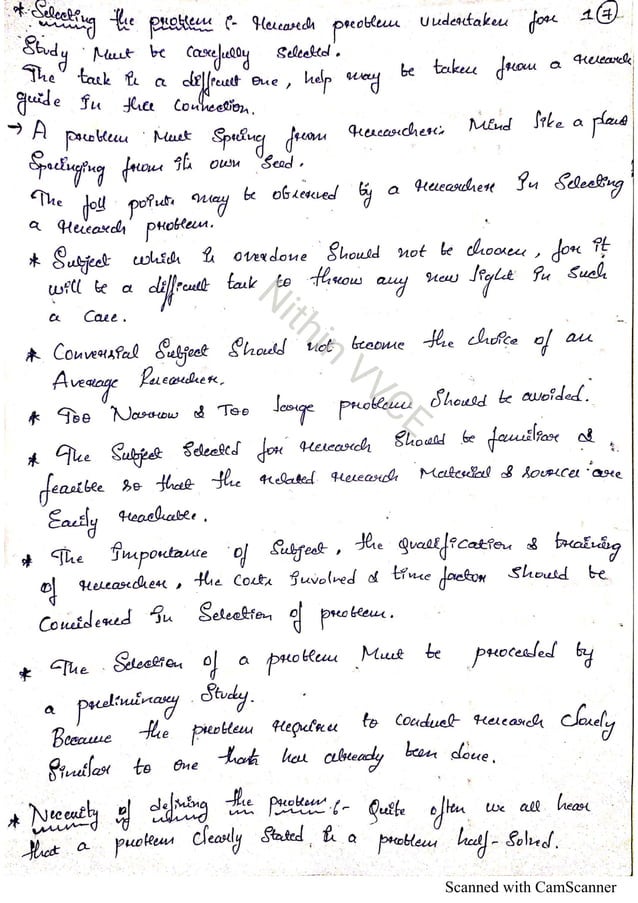 * Selecting the problem :- Research problem undertaken for 1 7
Study Must be Carefully Selected.
The task is a difficult one, help may be taken from a research
guide in this Connection.
→ A problem Must Spring from researchers Mind like a plant
Springing from its own Seed.
The foll points may be observed by a researcher In Selecting
a research problem.
* Subject which is overdone Should not be choosen, for it
will be a difficult task to throw any new light in Such
a Case.
* Conversial Subject Should not become the choice of an
Average Researcher.
* Too Narrow & Too large problems Should be avoided.
* The Subject Selected for research Should be familiar &
feasible so that the related research Material & sources are
Easily reachable.
* The Importance of Subject, the Qualification & training
of researcher, the Costs involved & time factor Should be
Considered In Selection of problem.
* The Selection of a problem Must be proceeded by
a preliminary Study.
Because the problem requires to Conduct research Closely
Similar to one that has already been done.
* Necessity of defining the problem :- Quite often we all hear
that a problem Clearly Stated, is a problem half-Solved.
Nithin VVCE
Scanned with CamScanner